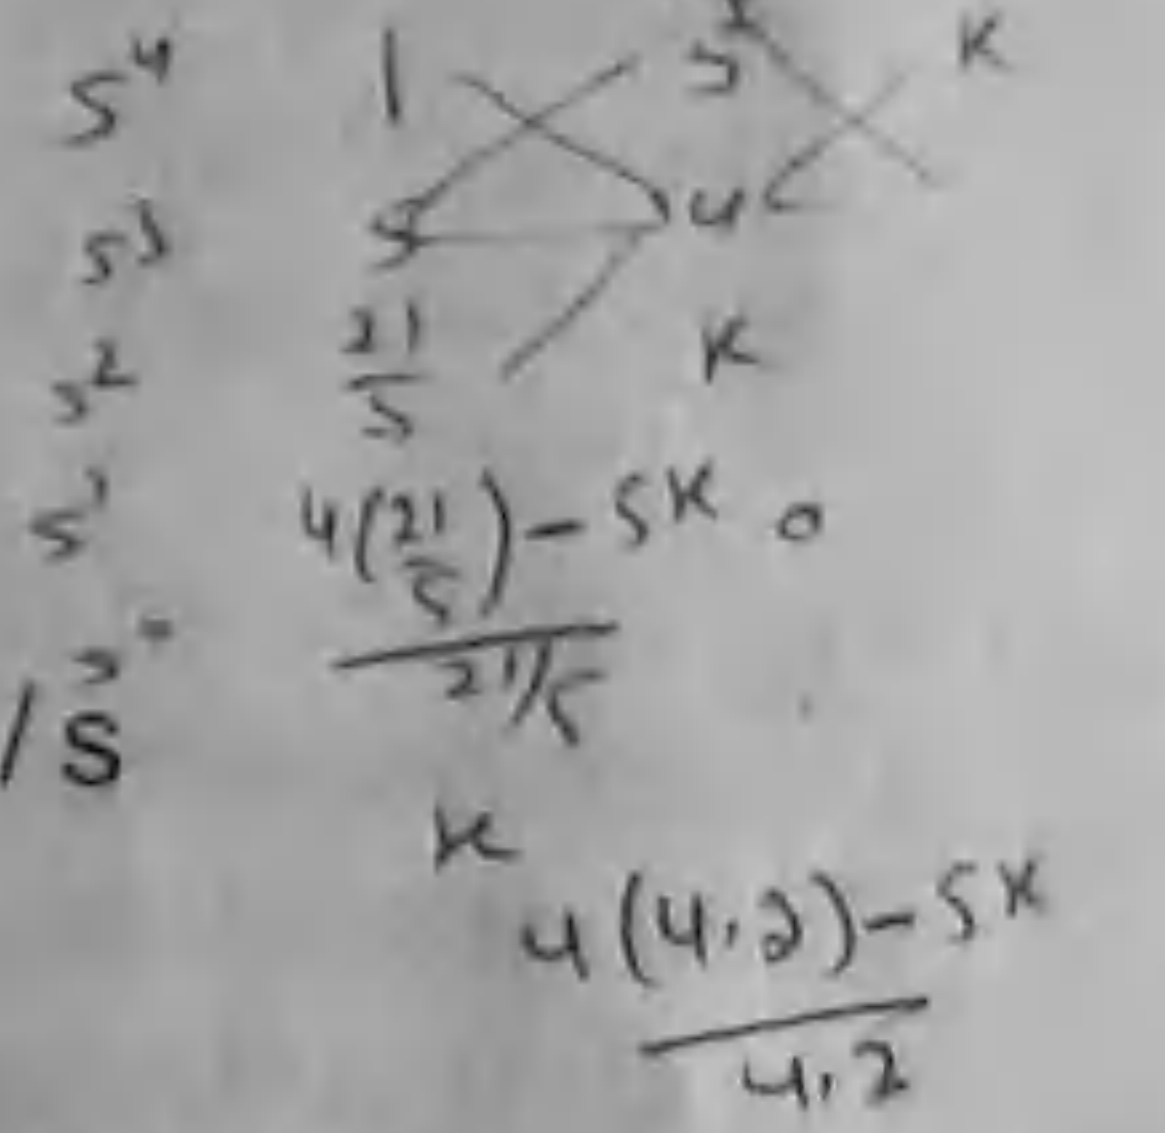 s⁴ 1 5 K
s³ 5 4
s² 21/5 K
s¹ 4(21/5) - 5K 0
21/5
s⁰
/S
K
4(4.2) - 5K
4.2